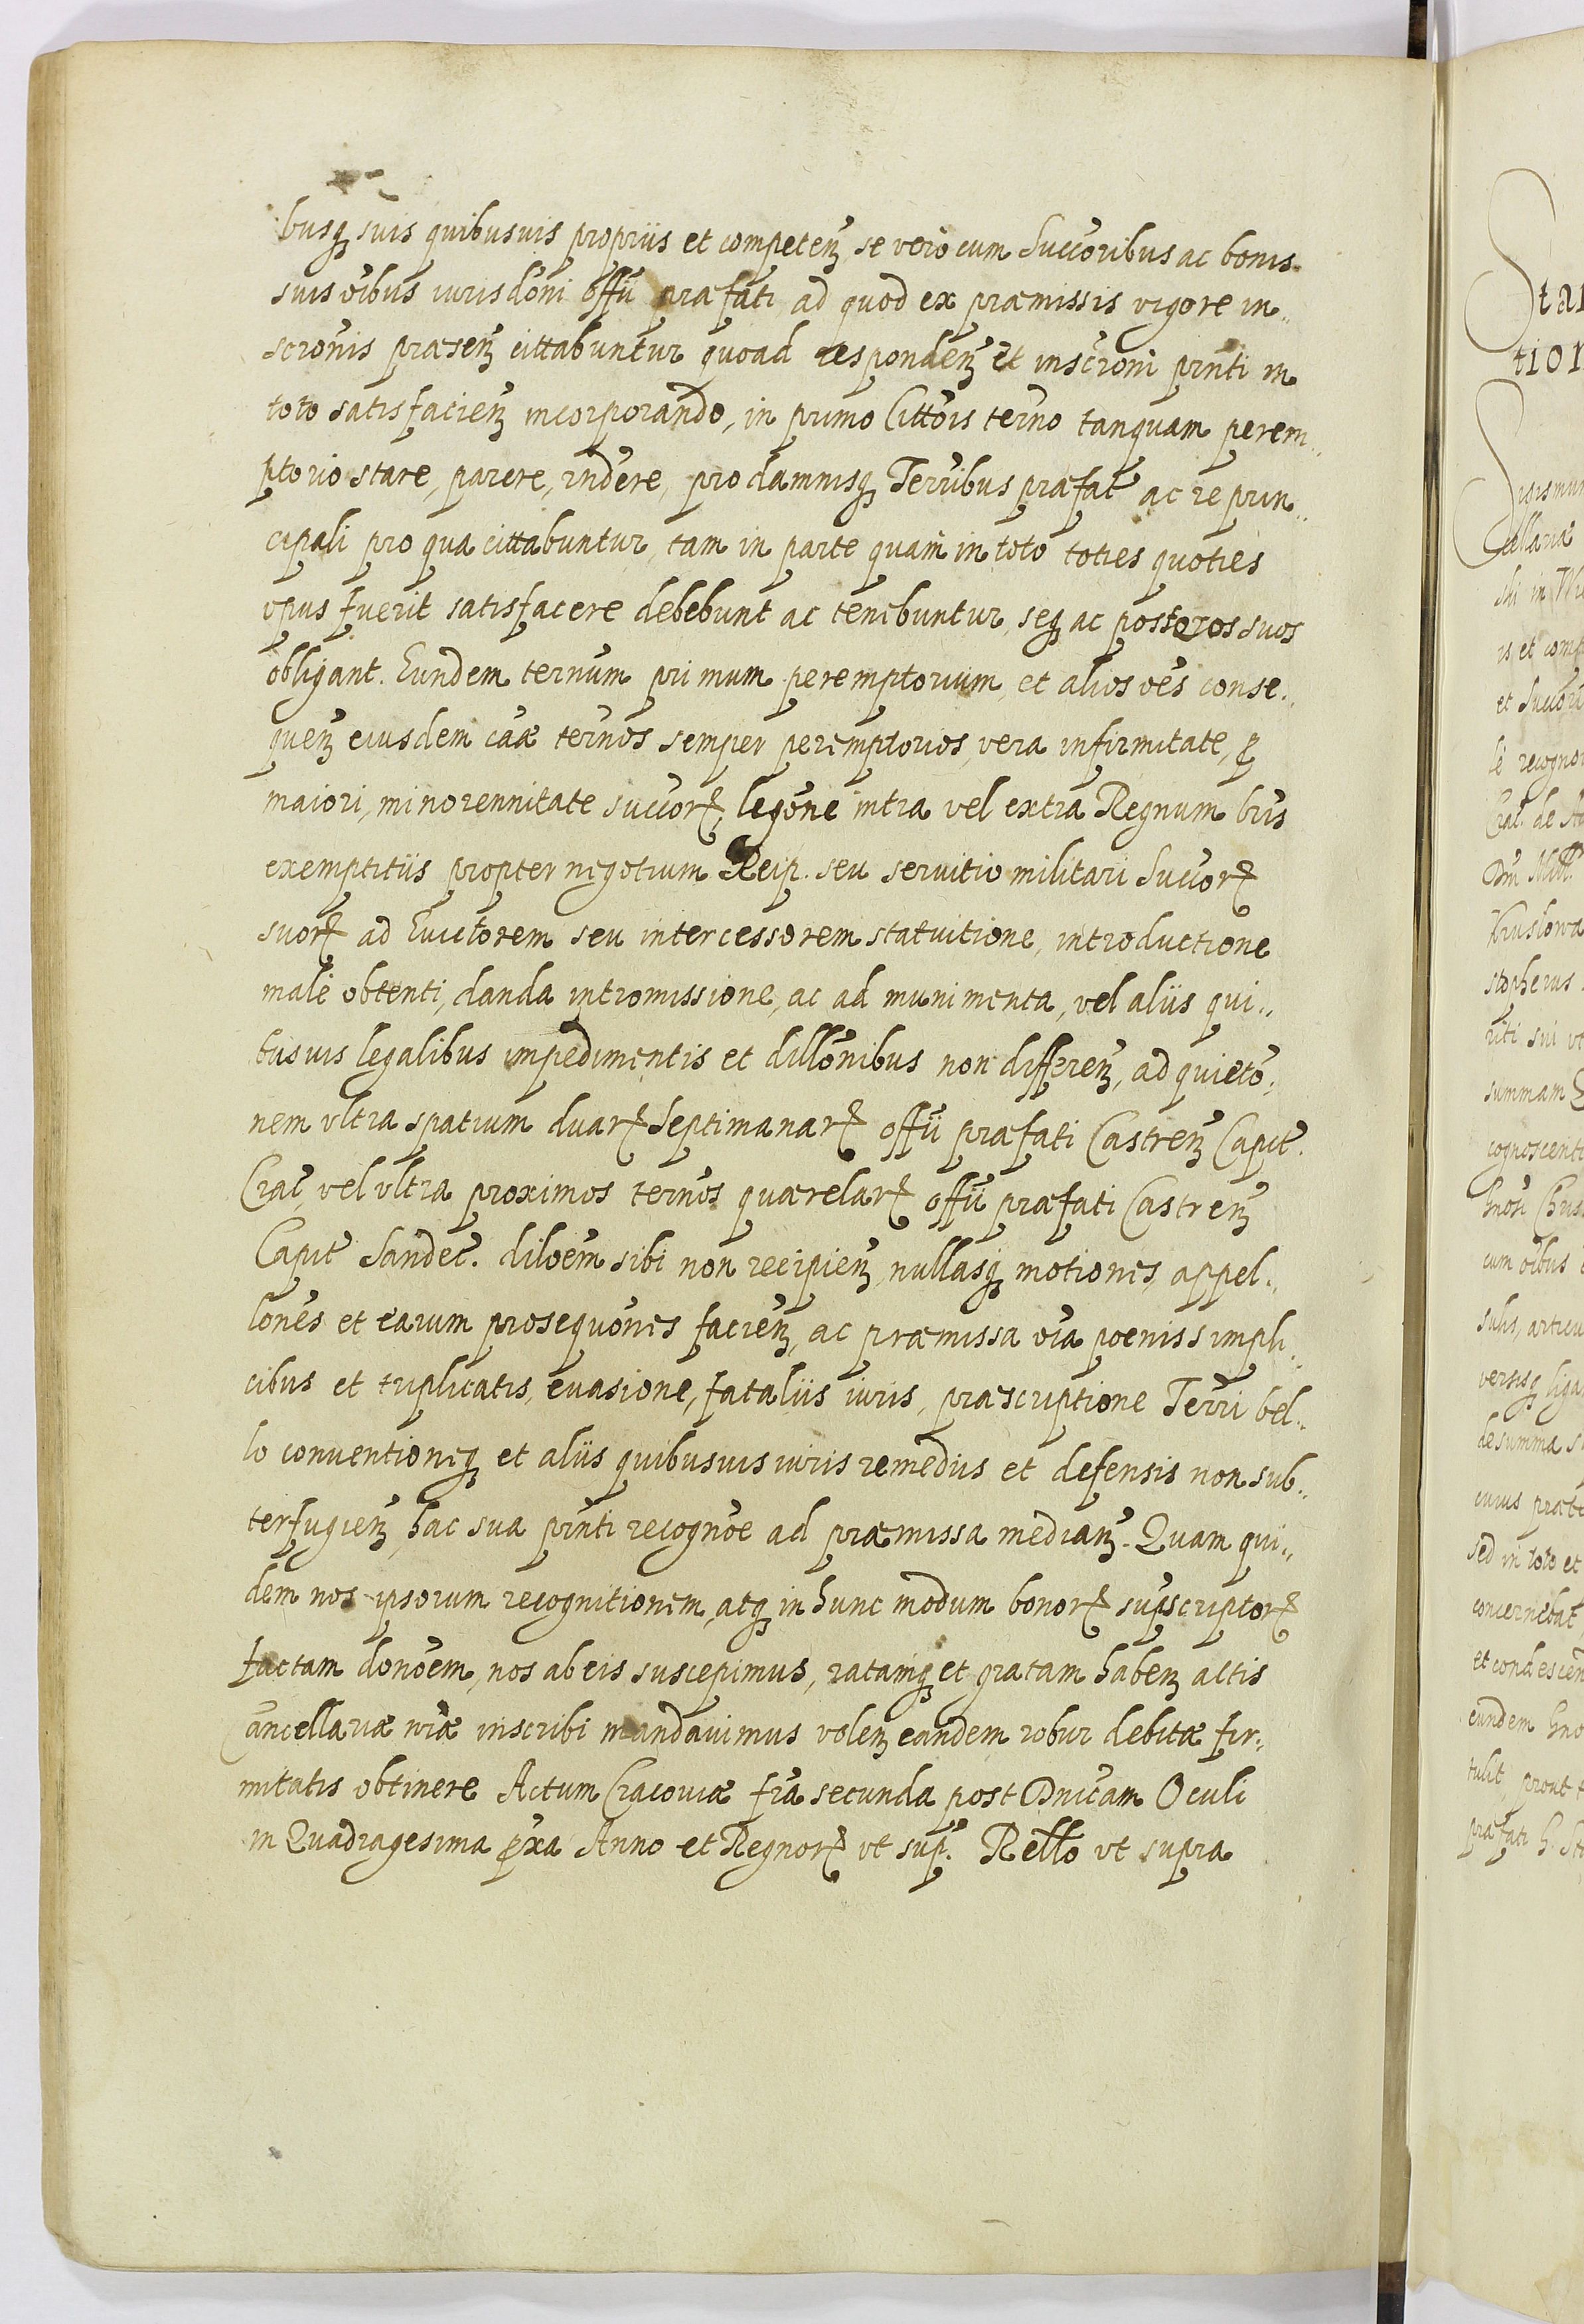 busq suis quibusuis propriis et competen se vero cum Succoribus ac bonis
suis oibus iurisdoni offii præfati ad quod ex præmissis vigore in..
scronis præsen cittabuntur quoad responden et inscroni pnti in
toto satisfacien incorporando, in primo Cittois terno tanquam perem..
ptorio stare, parere, rndere, pro damnisq Terribus præfat ac re prin..
cipali pro qua cittabuntur, tam in parte quam in toto toties quoties
opus fuerit satisfacere debebunt ac tenebuntur, seq ac possoros suos
obligant. Eundem ternum primum peremptorium, et alios oes conse..
quen eiusdem caæ ternos semper peremptorios, vera infirmitate, p
maiori, minorennitate succor, legone intra vel extra Regnum bris
exemptitiis propter negotium Reip. seu seruitio militari Succor
suor ad Euictorem seu intercessorem statuitione, introductione
malè obtenti, danda intromissione, ac ad munimenta, vel aliis qui..
busuis legalibus impedimentis et dillonibus non differen, ad quieto..
nem vltra spatium duar Septimanar offii præfati Castren Capit.
Crac, vel vltra proximos ternos quærelar offii præfati Castren
Capit Sandec. diloem sibi non recipien, nullasq motiones, appel..
lones et earum prosequones facien, ac præmissa oia poenis simpli..
cibus et triplicatis, euasione, fataliis iuris, præscriptione Terri bel..
lo conventioneq et aliis quibusuis iuris remediis et defensis non sub..
terfugien, hac sua pnti recognoe ad præmissa median. Quam qui..
dem nos ipsorum recognitionem, atq in hunc modum bonor supscriptor
factam donoem, nos ab eis suscepimus, ratamq et gratam haben actis
Cancellariæ nræ inscribi mandauimus volen eandem robur debitæ fir..
mitatis obtinere Actum Cracouiæ fria secunda post Dnicam Oculi
in Quadragesima pxa Anno et Regnor vt sup. Rello vt supra